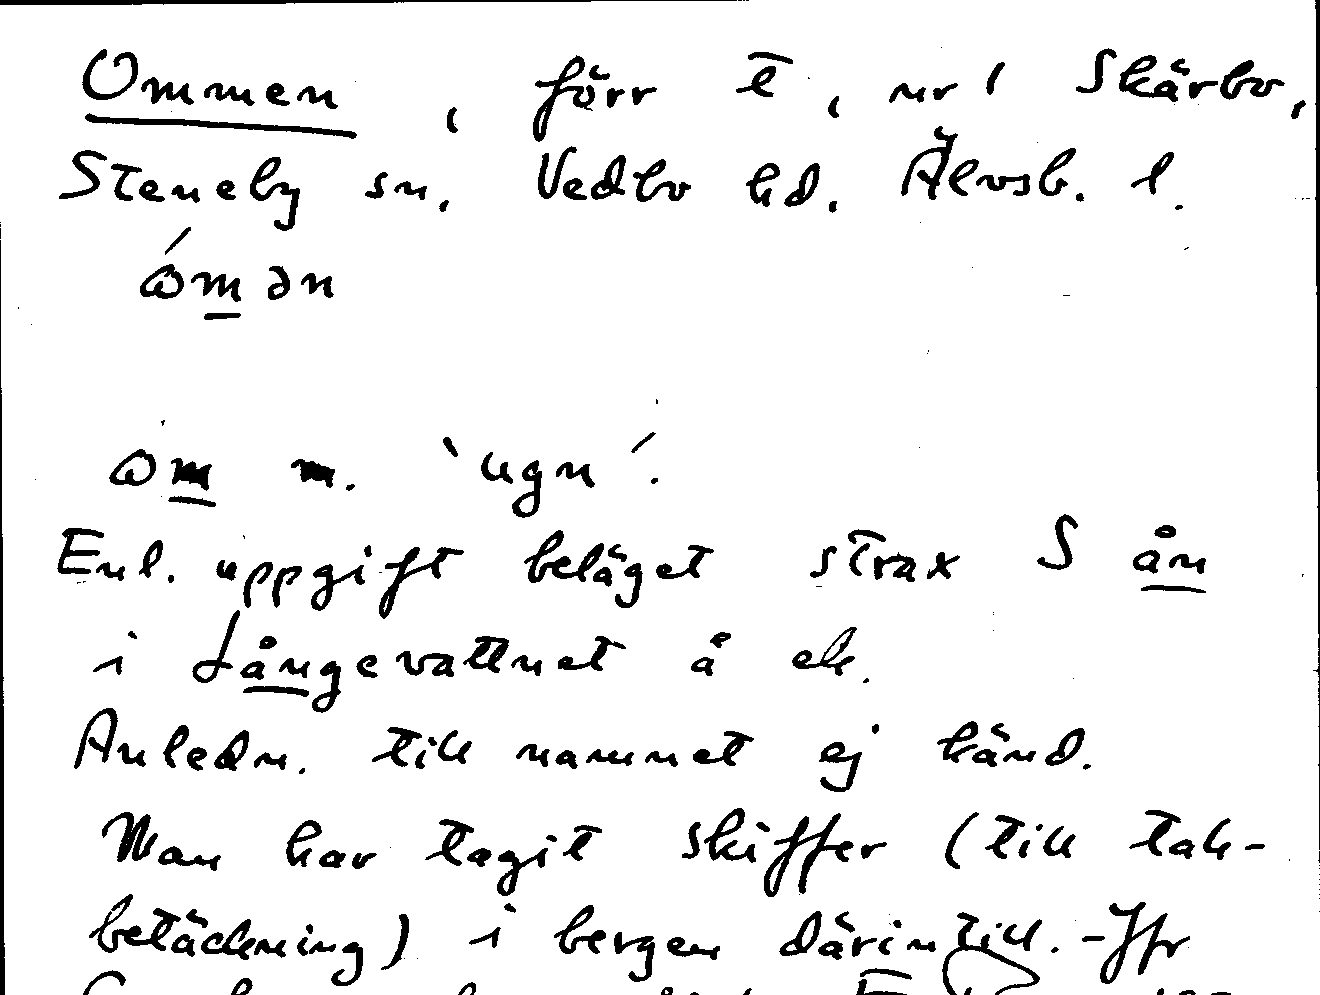 Ommen, förr t̄, nr 1 Skärbo,
Steneby sn, Vedbo hd. Älvsb. l.
ώm̲ən
ωm̲ m. `ugn´.
Enl. uppgift beläget strax S ån
i Långevattnet å ek.
Anledn. till namnet ej känd.
Man har tagit skiffer (till tak-
betäckning) i bergen därintill. - Jfr